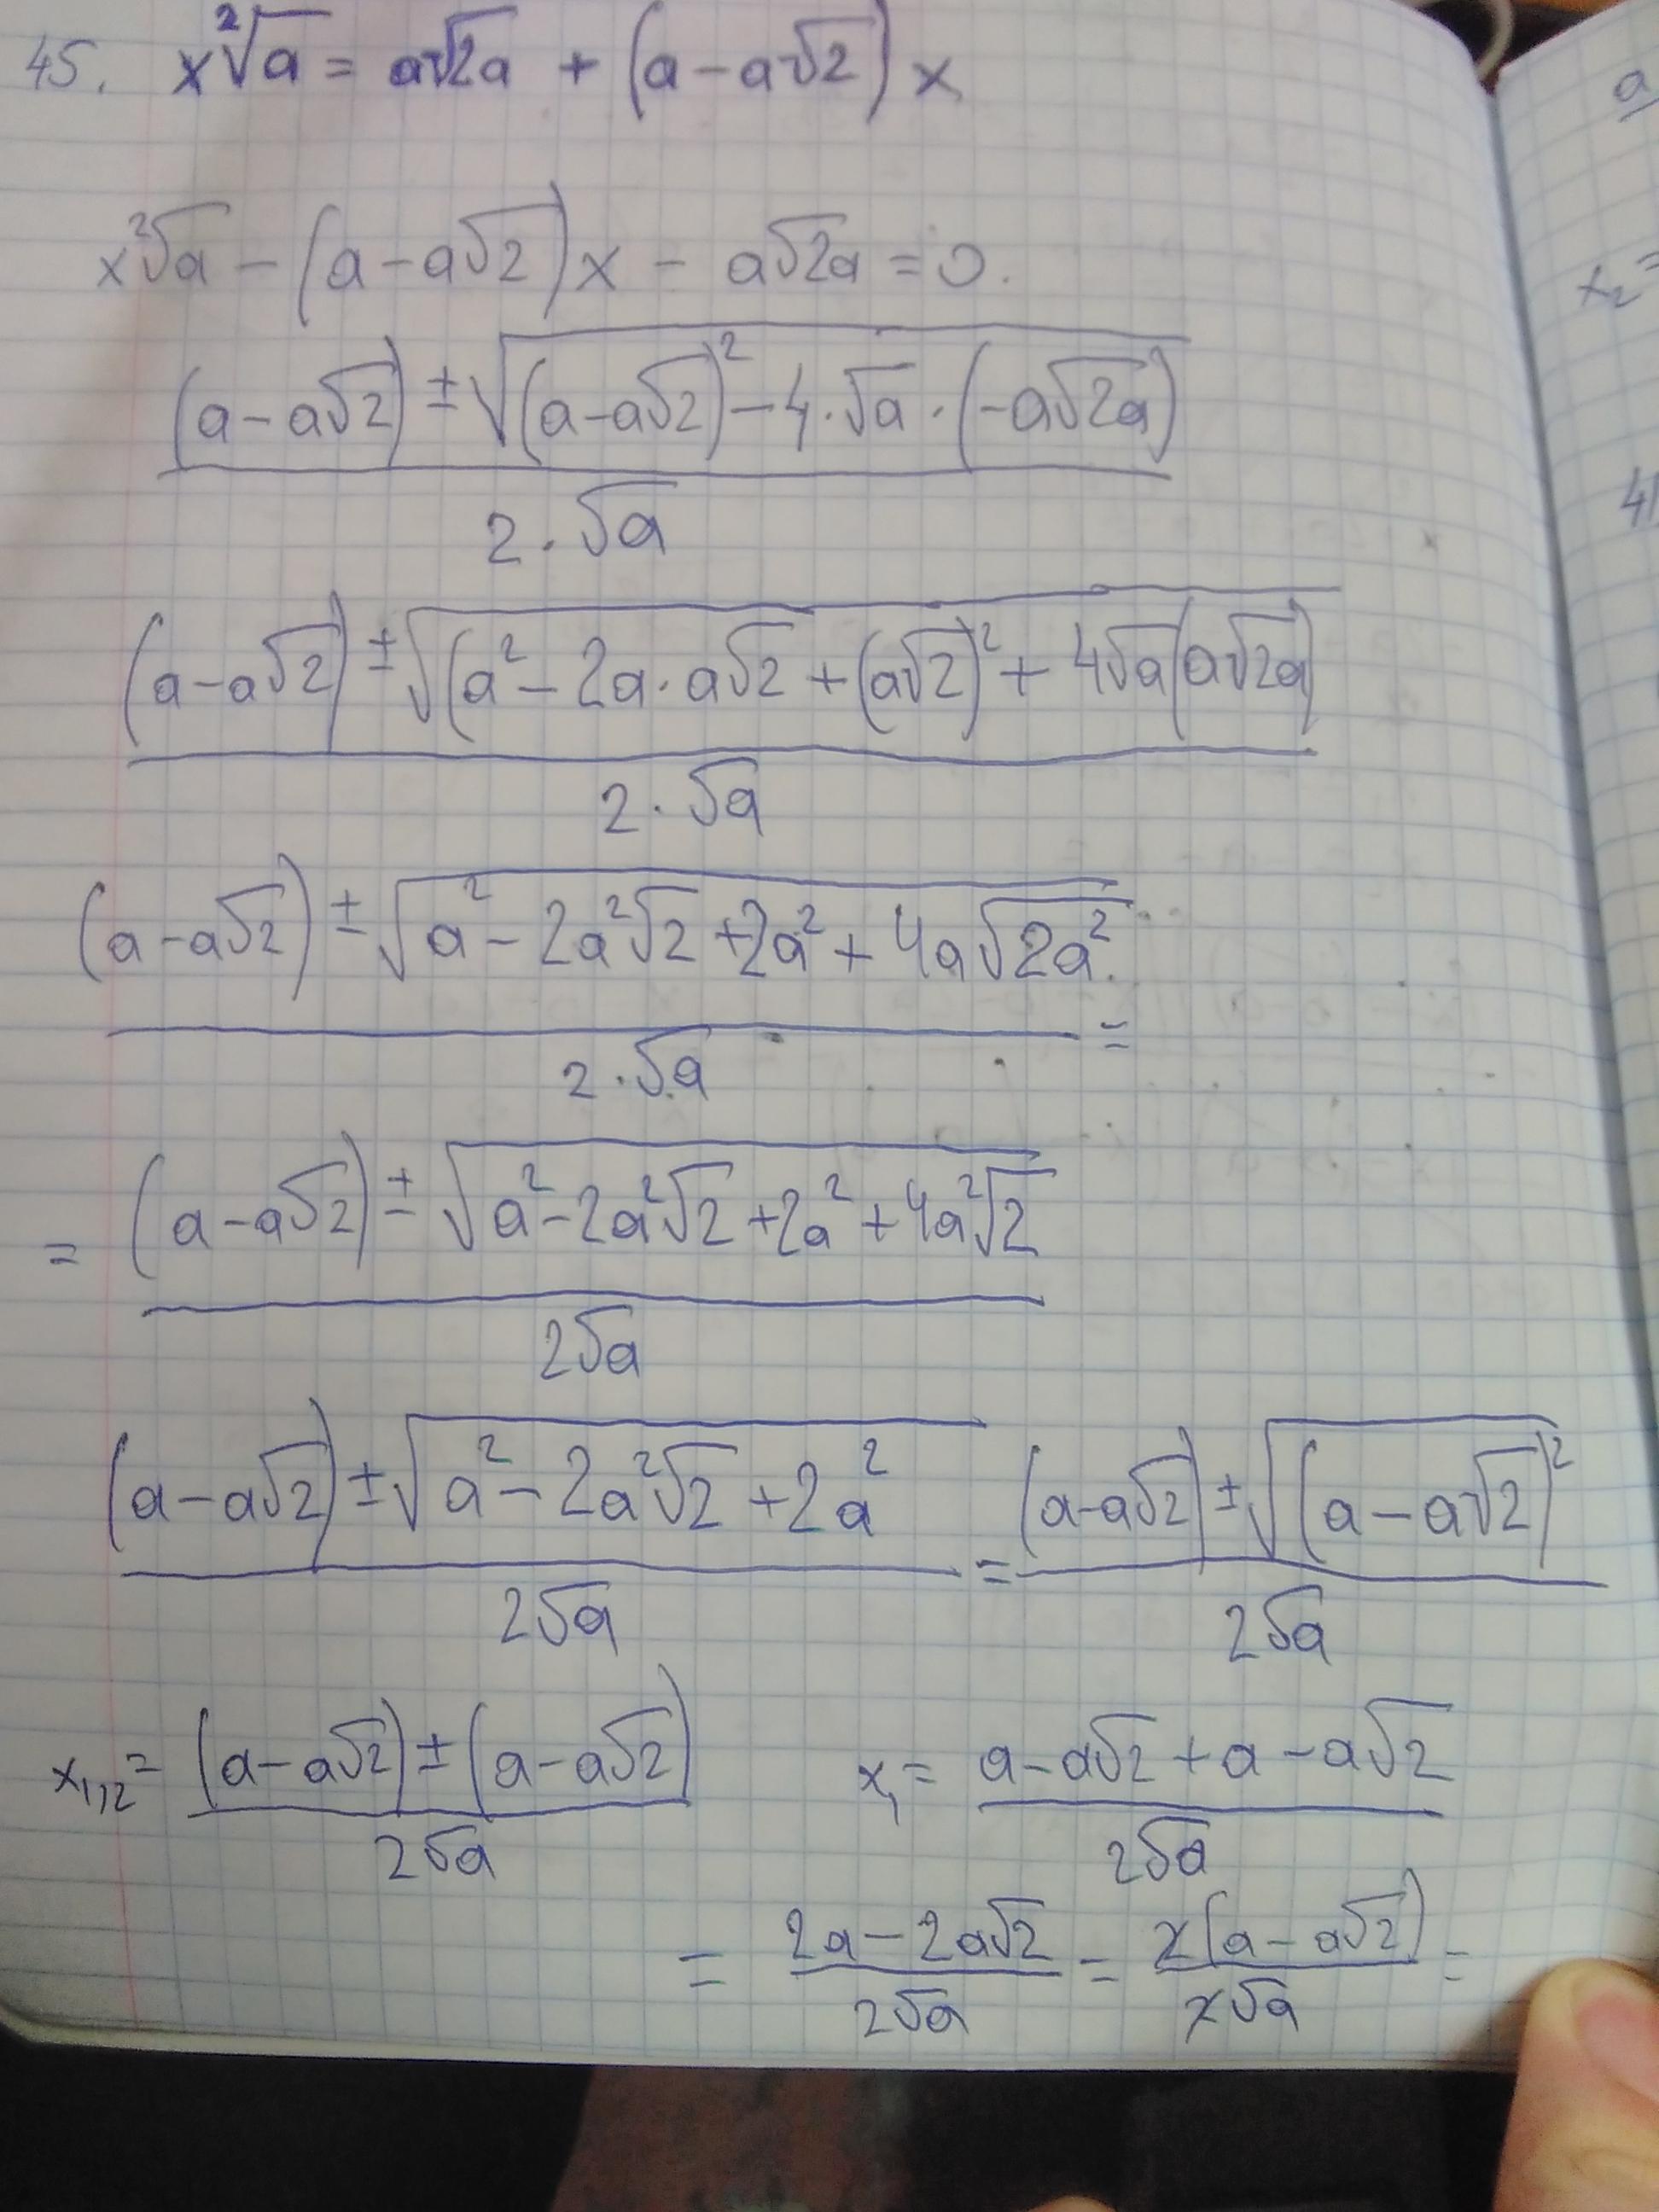 45. x²√a = a√2a + (a - a√2) x
a
x²√a - (a - a√2)x - a√2a = 0.
x₂ =
(a - a√2) ± √((a - a√2)² - 4·√a·(-a√2a))
2·√a
(a - a√2) ± √((a² - 2a·a√2 + (a√2)² + 4√a(a√2a)
2·√a
(a - a√2) ± √(a² - 2a²√2 + 2a² + 4a√2a²) =
2·√a
= (a - a√2) ± √(a² - 2a²√2 + 2a² + 4a²√2)
2√a
(a - a√2) ± √(a² - 2a²√2 + 2a²) = (a - a√2) ± √((a - a√2)²)
2√a 2√a
x₁,₂ = (a - a√2) ± (a - a√2) x₁ = a - a√2 + a - a√2
2√a 2√a
= 2a - 2a√2 = 2(a - a√2) =
2√a 2√a